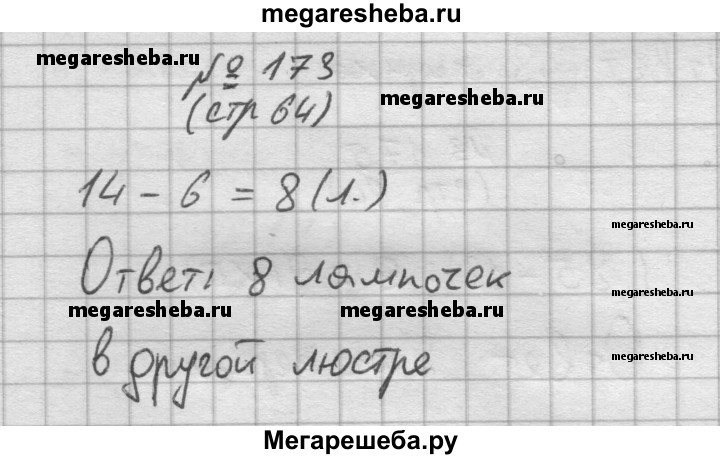 megaresheba.ru
№ 173
megaresheba.ru
(стр 64)
megaresheba.ru
14 - 6 = 8 (л.)
megaresheba.ru
Ответ: 8 лампочек
megaresheba.ru
megaresheba.ru
в другой люстре
megaresheba.ru
Мегарешеба.ру